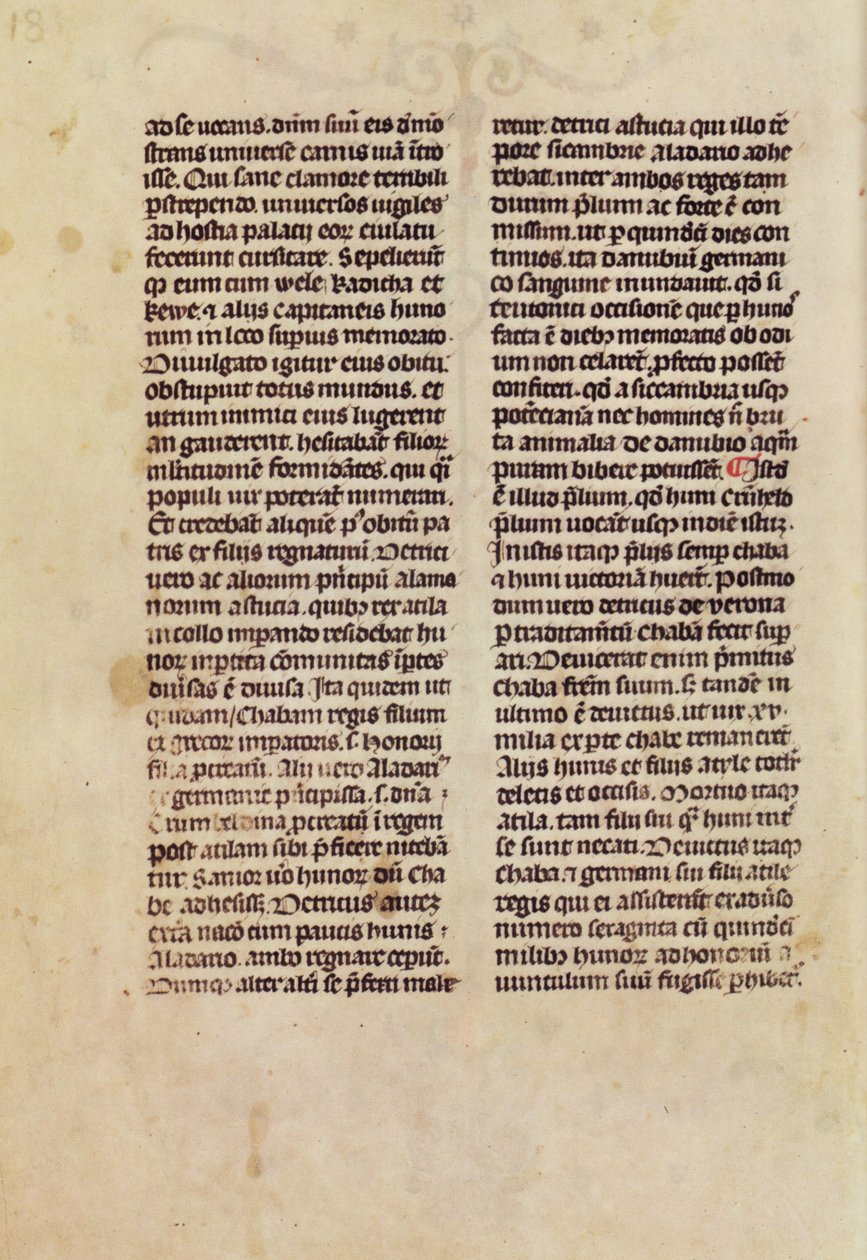 18
ad se uocans. dn̄m suū eis dmō
strans uniuerse carnis uiā ītro
isse. Qui sane clamore teribili
ꝑstrependo. uniuersos uigiles
ad hostia palacij eoꝝ eiulatu
fecerunt cursitare. Sepelieruͭ
qꝫ eum cum wele, kadicha et
kewe. ⁊ alijs capitaneis huno
rum in loco suꝑius memorato.
Diuulgato igitur eius obitu.
obstupuit totus mundus. et
utrum inimici eius lugerent
an gauderent. hesitabāt filioꝝ
ml̄titudinē formidātes. qui qͣi
populi uix poterāt numerari.
Et credebāt aliquē pꝰ obitū pa
tris ex filijs regnaturū. Detrici
uero ac aliorum pͥncipū alama
norum astucia. quibꝫ rex atila
in collo imꝑando residebat hu
noꝝ inꝑtita cōmunitas ī ꝑtes
diūsas ē diuisa. Ita quidem ut
quidam / Chabam regis filium
ex grecoꝝ imꝑatoris. s. honorij
filia ꝓcreatū. Alij uero Aladariū
germanie pͥncipissa. s. dn̄a
Crumheldina ꝓcreatū ī regem
post atilam sibi p̄ficere nitebā
tur. Sanior ūo hunoꝝ dū Cha
be adhesissꝫ. Detricus autē
extͣa nacō cum paucis hunis
Aladario. ambo regnare ceperūt.
Dumqꝫ alter altī se p̄ferri mole
retur. detrici astucia qui illo tē
pore sicambrie aladario adhe
rebat. inter ambos reges tam
durum p̄lium ac forte ē con
missum. ut ꝑ quindēī dies con
tinuos. ita danubiū germani
co sanguine inundauit. qd̄ si
teutonici occisionē que ꝑ hunoˢ
facta ē diebꝫ memoratis ob odi
um non celarēt. ꝓfecto possēt
confiteri. qd̄ a siccambria usqꝫ
potēcianā nec homines n̄ bru
ta animalia de danubio aqͣm
puram bibere potuissēt. ¶ Istd̄
ē illud p̄lium. qd̄ huni crūheld
p̄lium uocāt usqꝫ in diē istuꝫ.
In istis itaqꝫ p̄lijs semꝑ chaba
⁊ huni uictoriā huerūt. Postmo
dum uero detricus de verona
ꝑ traditamētū chabā fecit suꝑ
ari. Deuicerat enim p̄mitus
chaba frēm suum. sꝫ tandē in
ultimo ē deuictus. ut uix .xv.
milia ex ꝑte chabe remanerēt
Alijs hunis et filijs atyle totlr̄
deletis et occisis. Mortuo itaqꝫ
atila. tam filij sui qͣ huni inͭ
se sunt necati. Deuictus itaqꝫ
chaba. ⁊ germani sui filij atile
regis qui ei assistenͭ ex adūso
numero sexaginta cū quindēī
milibꝫ hunoꝝ ad honoriū a
uunculum suū fugisse ꝑhibēt.